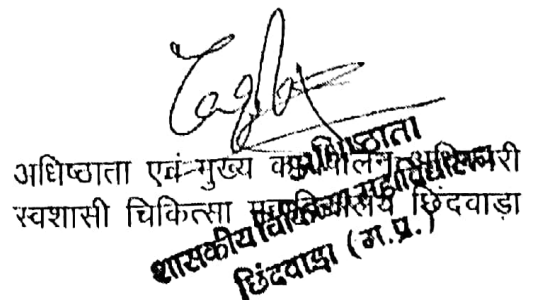 अधिष्ठाता एवं मुख्य कार्यपालन अधिकारी
स्वशासी चिकित्सा महाविद्यालय छिंदवाड़ा
अधिष्ठाता
शासकीय चिकित्सा महाविद्यालय
छिंदवाड़ा (म.प्र.)